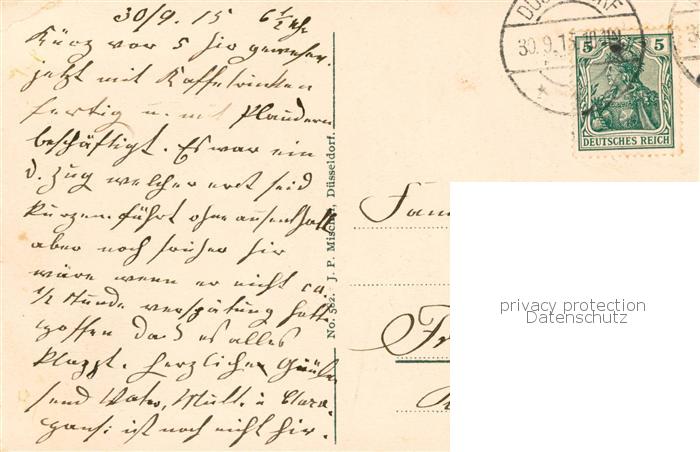 30/9. 15 6 1/2 Uhr
Kurz vor 5 hir gewesen.
jetzt mit Kaffetrinken
fertig u. mit Plaudern
beschäftigt. Es war ein
d. Zug welcher erst seid
kurzem führt ohne aufenthalt
aber noch früher hir
wäre wenn er nicht ca.
1/2 Stunde verspätung hatte
hoffen das es alles
klappt. herzliche Grüße
send Vater, Mutt. u Clara.
hans: ist noch nicht hir.
No. 582. J. P. Mischel, Düsseldorf.
30.9.15
5 5
DEUTSCHES REICH
Fam
privacy protection
Datenschutz